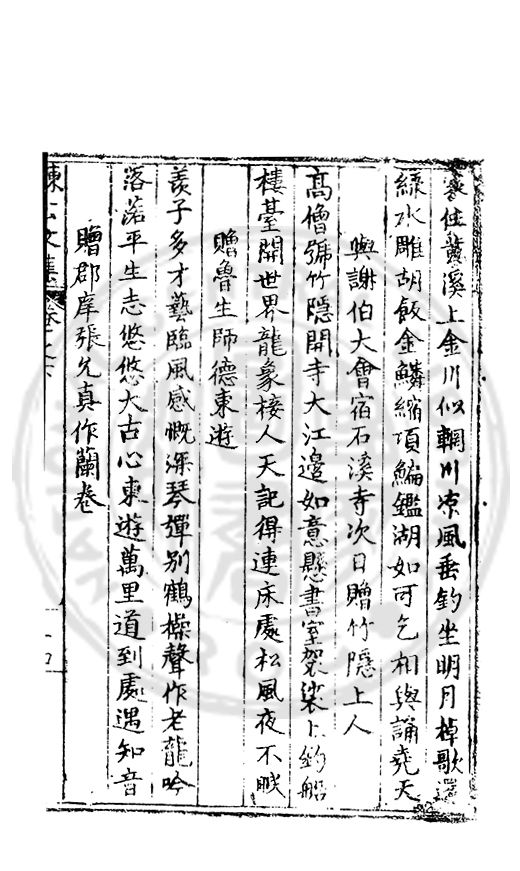 家住黃溪上金川似輞川凉風垂釣坐明月棹歌還
綠水雕胡飯金鱗縮項鯿鑑湖如可乞相與誦堯天
與謝伯大會宿石溪寺次日贈竹隱上人
高僧號竹隱開寺大江邊如意懸書室袈裟上釣船
樓臺開世界龍象接人天記得連床處松風夜不眠
贈魯生師德東遊
羨子多才藝臨風感慨深琴彈別鶴操聲作老龍吟
落落平生志悠悠太古心東遊萬里道到處遇知音
贈郡庠張允真作蘭卷